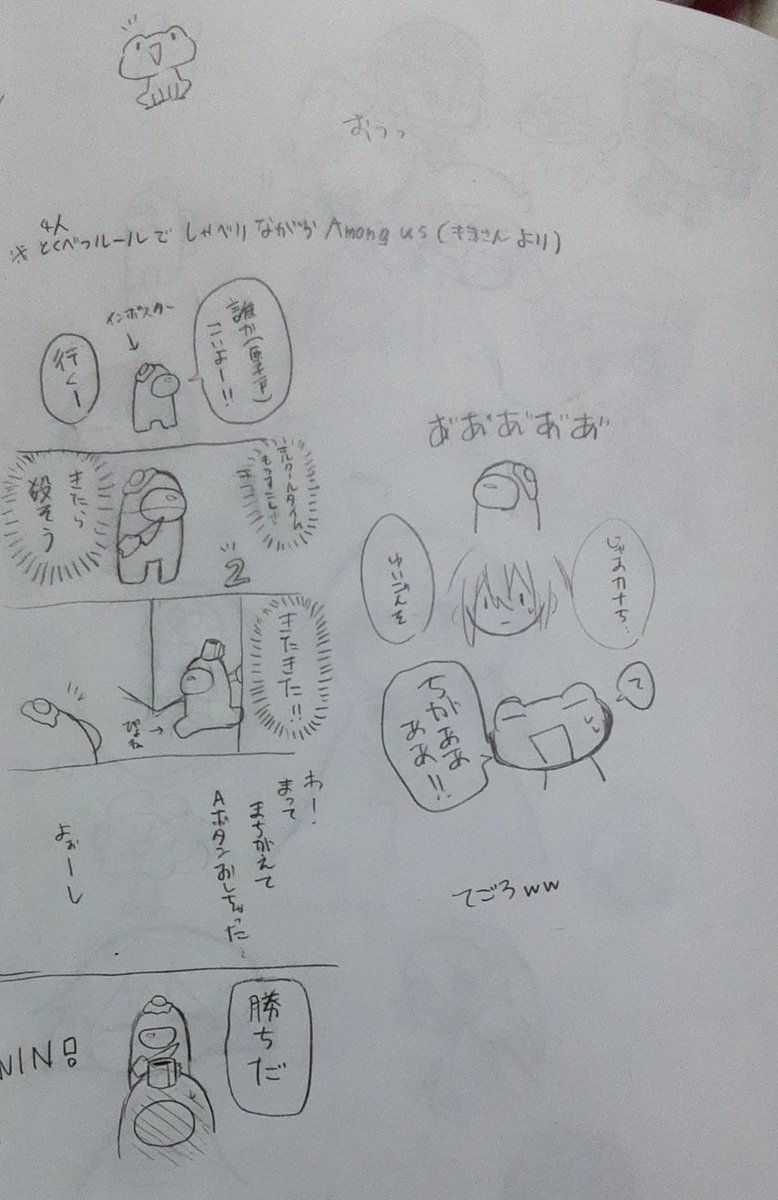 おっっ
4人
※とくべつルールで しゃべりながら Among us (キヨさんより)
誰か
こいよー!!
インポスター
行くー
キルクールタイム
もうすこしで
きたら
殺そう
2
きたきた!!
わー!
まって
まちがえて
Aボタンおしちゃった
よぉーし
勝ちだ
WIN!
あ゛あ゛あ゛あ゛あ゛
じゃあカナち…
ゆいごんを
て
ちがぁぁ
ぁぁ!!
てごろww